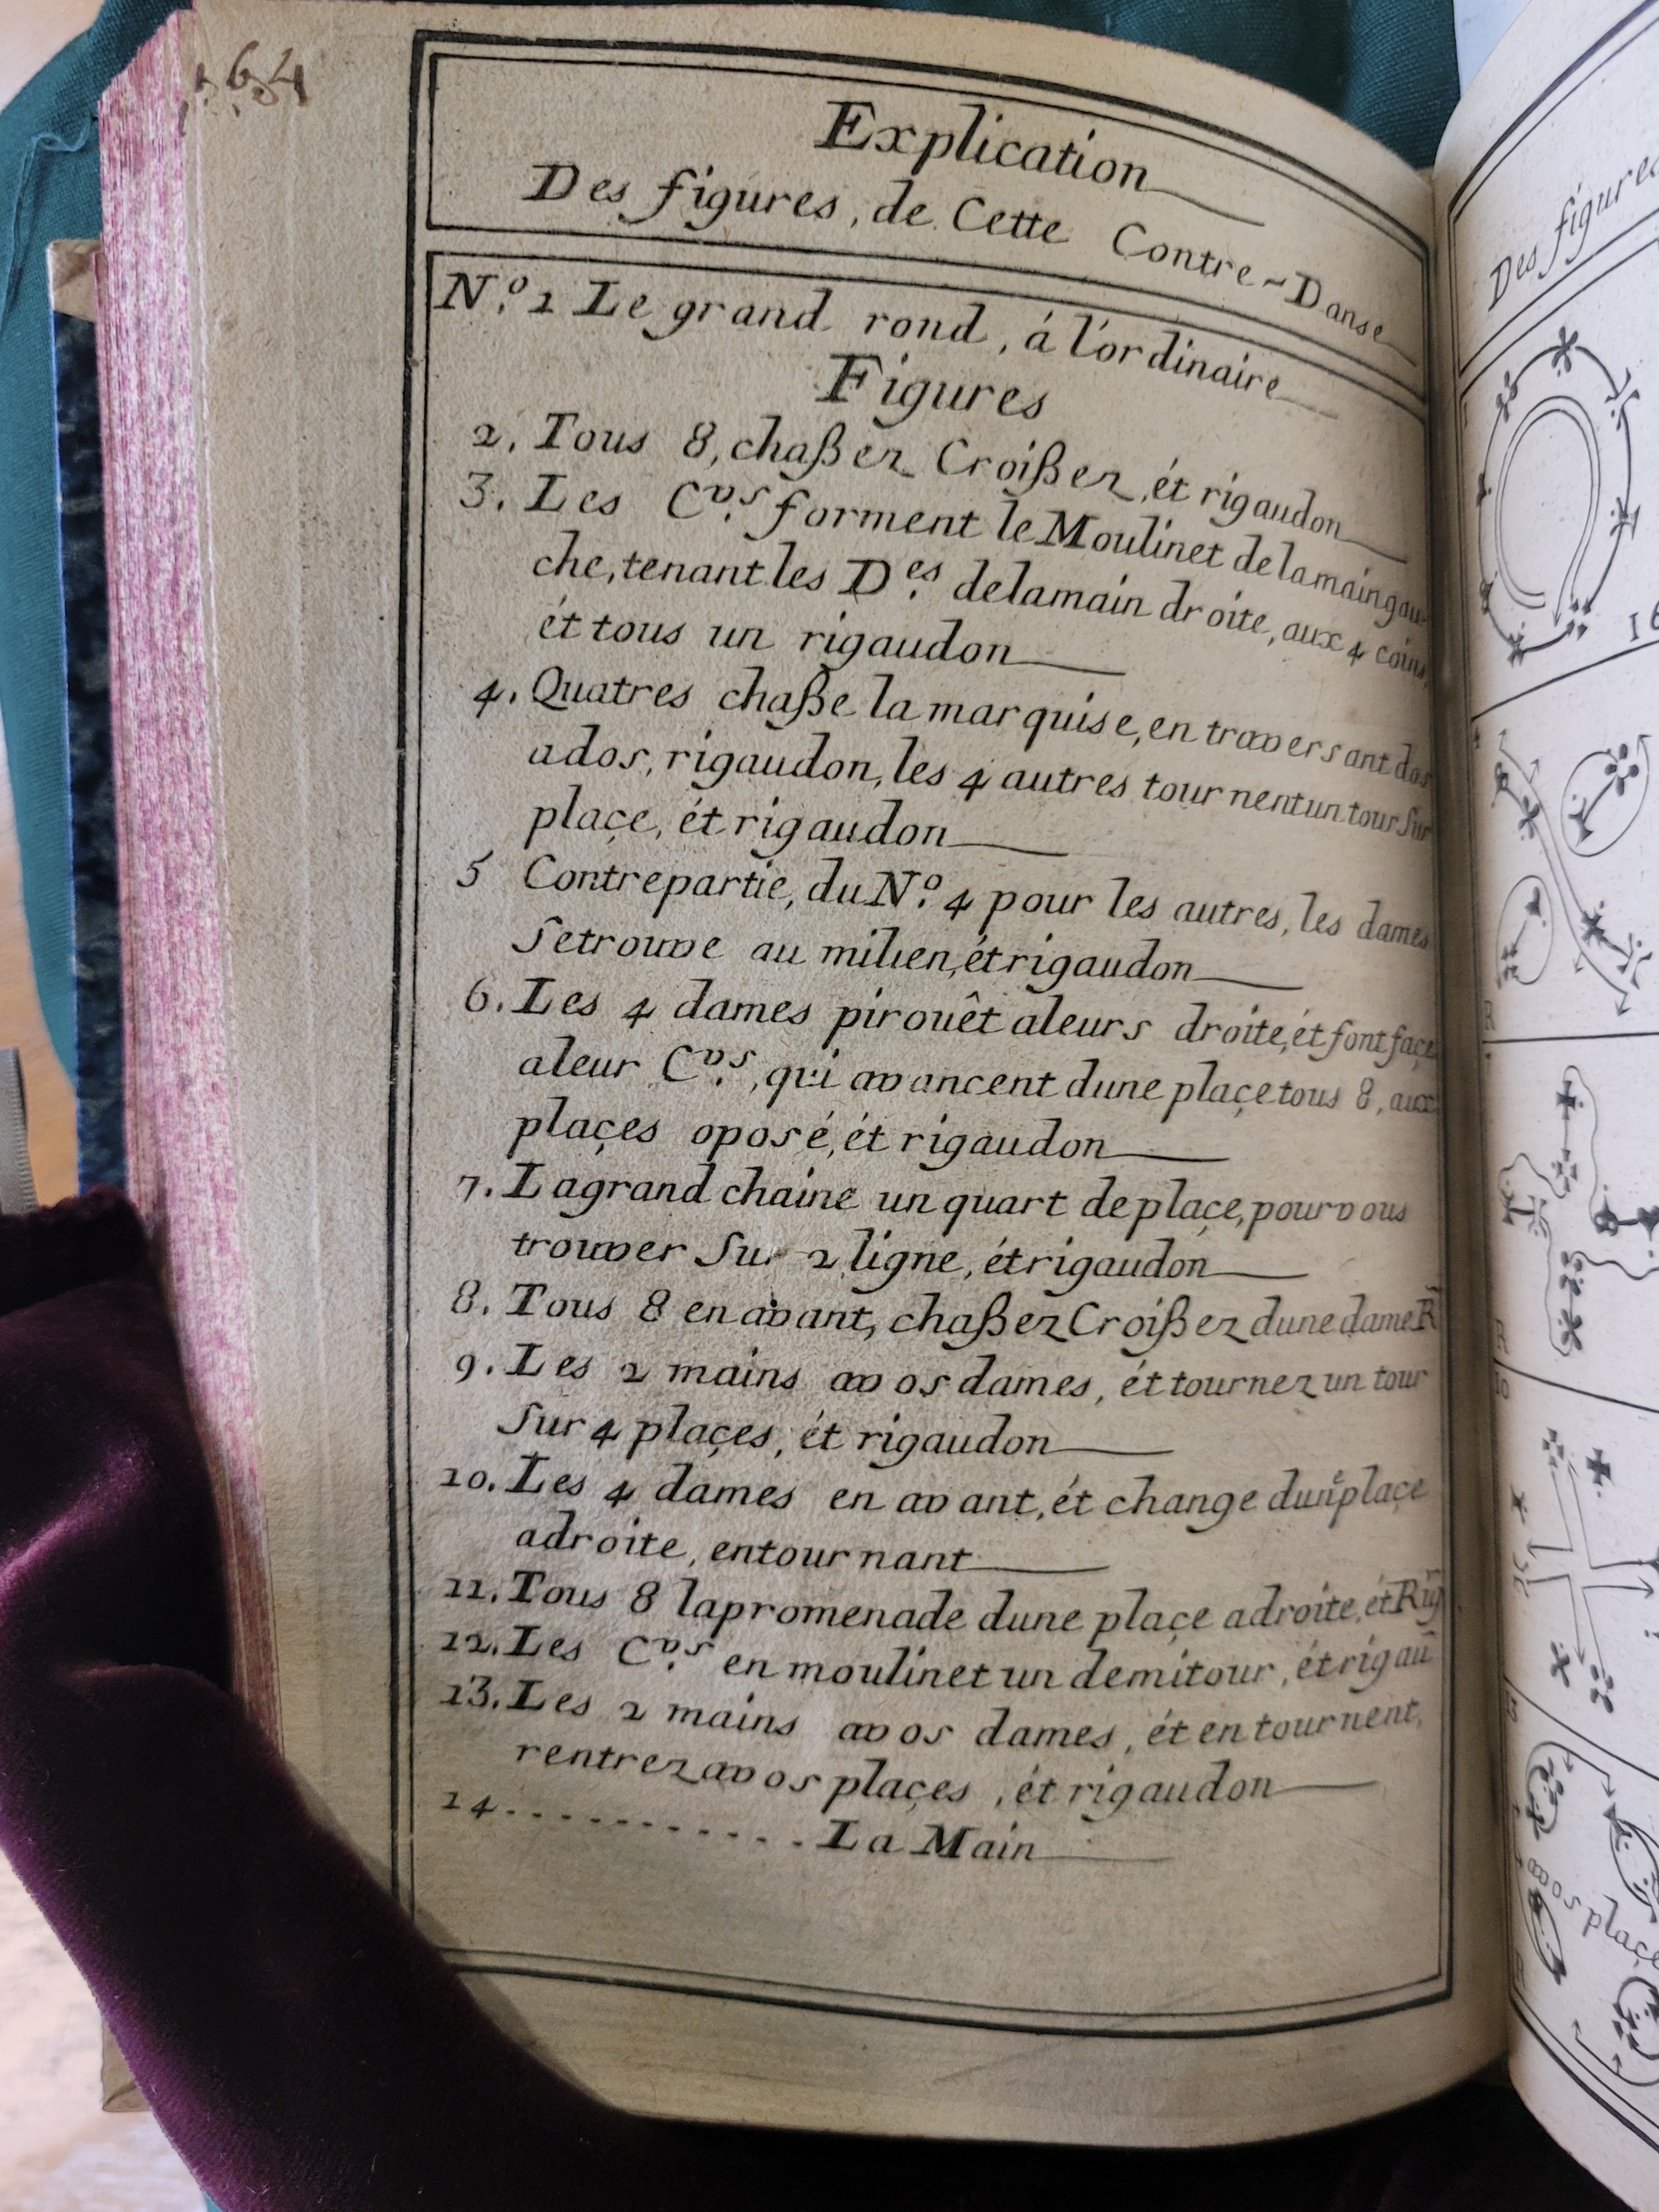 Explication
Des figures, de Cette Contre-Danse
N.º 1 Le grand rond, á l'ordinaire
Figures
2. Tous 8, chaßez Croißez, ét rigaudon
3. Les C.vs forment le Moulinet delamaingau-
che, tenant les D.es delamain droite, aux 4 coins,
ét tous un rigaudon
4. Quatres chaße la marquise, en traversant dos
ados, rigaudon, les 4 autres tournent un tour sur
plaçe, ét rigaudon
5 Contrepartie, du N.º 4 pour les autres, les dames
setrouve au milien, ét rigaudon
6. Les 4 dames pirouêt aleurs droite, ét font façe
aleur C.vs, qui avancent dune plaçe tous 8, aux
plaçes oposé, ét rigaudon
7. Lagrand chaine un quart de plaçe, pour vous
trouver sur 2 ligne, ét rigaudon
8. Tous 8 en avant, chaßez Croißez dune dame R
9. Les 2 mains avos dames, ét tournez un tour
sur 4 plaçes, ét rigaudon
10. Les 4 dames en avant, ét change dune plaçe
adroite, entournant
11. Tous 8 lapromenade dune plaçe adroite, ét Rig
12. Les C.vs en moulinet un demitour, ét rigau
13. Les 2 mains avos dames, ét en tournent,
rentrez avos plaçes, ét rigaudon
14 . . . . . . . . . . . La Main
Des figures
avos plaçe